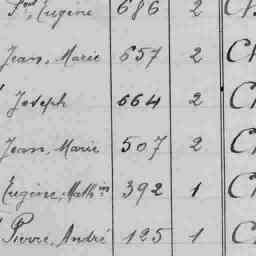 Eugène 686 2 Ch
Jean, Marie 657 2 Ch
Joseph 664 2 Ch
Jean, Marie 507 2 Ch
Eugène, Math<sup>in</sup> 392 1 Ch
Pierre, André 125 1 Ch